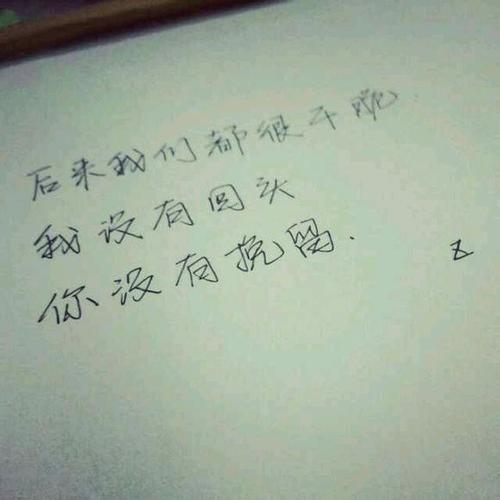 后来我们都很干脆.
我没有回头
你没有挽留.
z